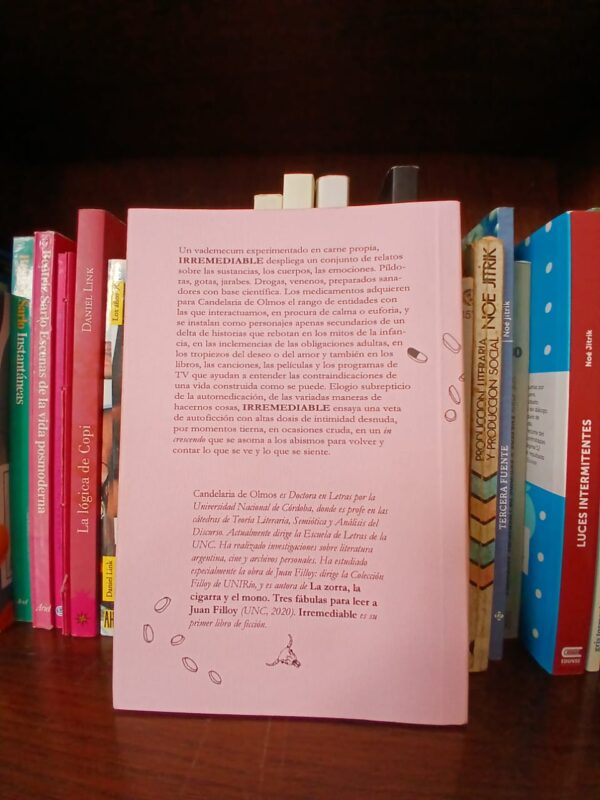 Un vademecum experimentado en carne propia,
IRREMEDIABLE despliega un conjunto de relatos
sobre las sustancias, los cuerpos, las emociones. Píldo-
ras, gotas, jarabes. Drogas, venenos, preparados sana-
dores con base científica. Los medicamentos adquieren
para Candelaria de Olmos el rango de entidades con
las que interactuamos, en procura de calma o euforia, y
se instalan como personajes apenas secundarios de un
delta de historias que rebotan en los mitos de la infan-
cia, en las inclemencias de las obligaciones adultas, en
los tropiezos del deseo o del amor y también en los
libros, las canciones, las películas y los programas de
TV que ayudan a entender las contraindicaciones de
una vida construida como se puede. Elogio subrepticio
de la automedicación, de las variadas maneras de
hacernos cosas, IRREMEDIABLE ensaya una veta
de autoficción con altas dosis de intimidad desnuda,
por momentos tierna, en ocasiones cruda, en un in
crescendo que se asoma a los abismos para volver y
contar lo que se ve y lo que se siente.
Candelaria de Olmos es Doctora en Letras por la
Universidad Nacional de Córdoba, donde es profe en las
cátedras de Teoría Literaria, Semiótica y Análisis del
Discurso. Actualmente dirige la Escuela de Letras de la
UNC. Ha realizado investigaciones sobre literatura
argentina, cine y archivos personales. Ha estudiado
especialmente la obra de Juan Filloy: dirige la Colección
Filloy de UNIRío, y es autora de La zorra, la
cigarra y el mono. Tres fábulas para leer a
Juan Filloy (UNC, 2020). Irremediable es su
primer libro de ficción.
Sarlo Instantáneas
Beatriz Sarlo Escenas de la vida posmoderna
Ariel
DANIEL LINK
La lógica de Copi
Los años
Daniel Link
PRODUCCION LITERARIA
Y PRODUCCION SOCIAL
NOE JITRIK
Noé Jitrik
TERCERA FUENTE
Noé Jitrik
LUCES INTERMITENTES
EDUVIM